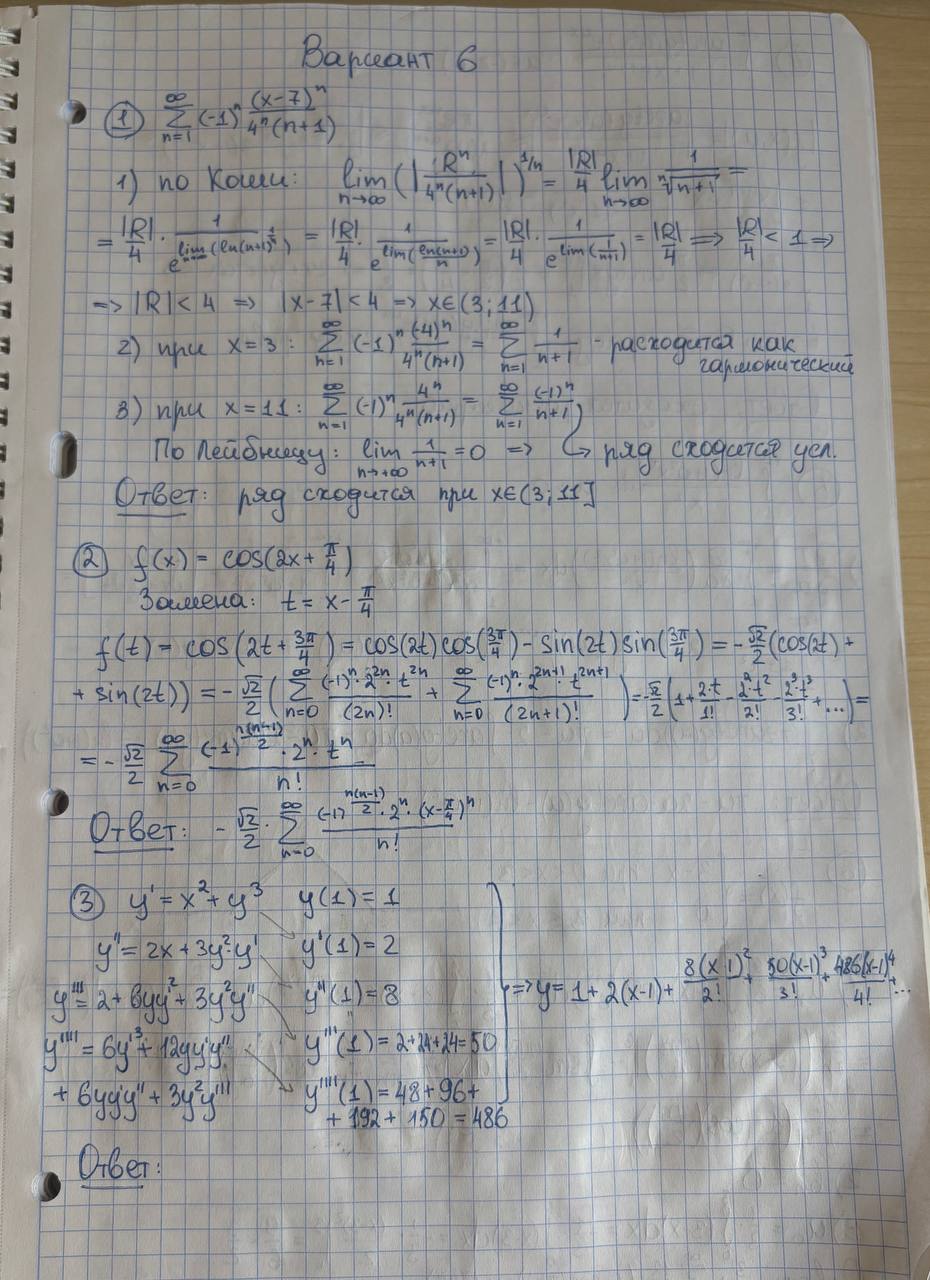 Вариант 6
① \sum_{n=1}^{\infty} (-1)^n \frac{(x-7)^n}{4^n(n+1)}
1) по Коши: \lim_{n→∞} (|\frac{R^n}{4^n(n+1)}|)^{1/n} = \frac{|R|}{4} \lim_{n→∞} \frac{1}{\sqrt[n]{n+1}} =
= \frac{|R|}{4} · \frac{1}{e^{\lim_{n→∞}(ln(n+1)^{\frac{1}{n}})}} = \frac{|R|}{4} · \frac{1}{e^{\lim(\frac{ln(n+1)}{n})}} = \frac{|R|}{4} · \frac{1}{e^{\lim(\frac{1}{n+1})}} = \frac{|R|}{4} => \frac{|R|}{4} < 1 =>
=> |R| < 4 => |x-7| < 4 => x∈(3;11)
2) при x=3: \sum_{n=1}^{\infty} (-1)^n \frac{(-4)^n}{4^n(n+1)} = \sum_{n=1}^{\infty} \frac{1}{n+1} - расходится как
гармонический
3) при x=11: \sum_{n=1}^{\infty} (-1)^n \frac{4^n}{4^n(n+1)} = \sum_{n=1}^{\infty} \frac{(-1)^n}{n+1}
По Лейбницу: \lim_{n→+∞} \frac{1}{n+1} = 0 => ↳ ряд сходится усл.
Ответ: ряд сходится при x∈(3;11]
② f(x) = cos(2x + \frac{π}{4})
Замена: t = x - \frac{π}{4}
f(t) = cos(2t + \frac{3π}{4}) = cos(2t)cos(\frac{3π}{4}) - sin(2t)sin(\frac{3π}{4}) = -\frac{\sqrt{2}}{2}(cos(2t) +
+ sin(2t)) = -\frac{\sqrt{2}}{2} (\sum_{n=0}^{\infty} \frac{(-1)^n · 2^{2n} · t^{2n}}{(2n)!} + \sum_{n=0}^{\infty} \frac{(-1)^n · 2^{2n+1} · t^{2n+1}}{(2n+1)!}) = -\frac{\sqrt{2}}{2} (1 + \frac{2·t}{1!} - \frac{2^2·t^2}{2!} - \frac{2^3·t^3}{3!} + ...) =
= -\frac{\sqrt{2}}{2} \sum_{n=0}^{\infty} \frac{(-1)^{\frac{n(n-1)}{2}} · 2^n · t^n}{n!}
Ответ: -\frac{\sqrt{2}}{2} · \sum_{n=0}^{\infty} \frac{(-1)^{\frac{n(n-1)}{2}} · 2^n · (x-\frac{π}{4})^n}{n!}
③ y' = x^2 + y^3 y(1) = 1
y'' = 2x + 3y^2·y' y'(1) = 2
y''' = 2 + 6yy'^2 + 3y^2y'' y''(1) = 8 => y = 1 + 2(x-1) + \frac{8(x-1)^2}{2!} + \frac{50(x-1)^3}{3!} + \frac{486(x-1)^4}{4!} + ...
y'''' = 6y'^3 + 12yy'y'' y'''(1) = 2+24+24 = 50
+ 6yy'y'' + 3y^2y''' y''''(1) = 48 + 96 +
+ 192 + 150 = 486
Ответ: